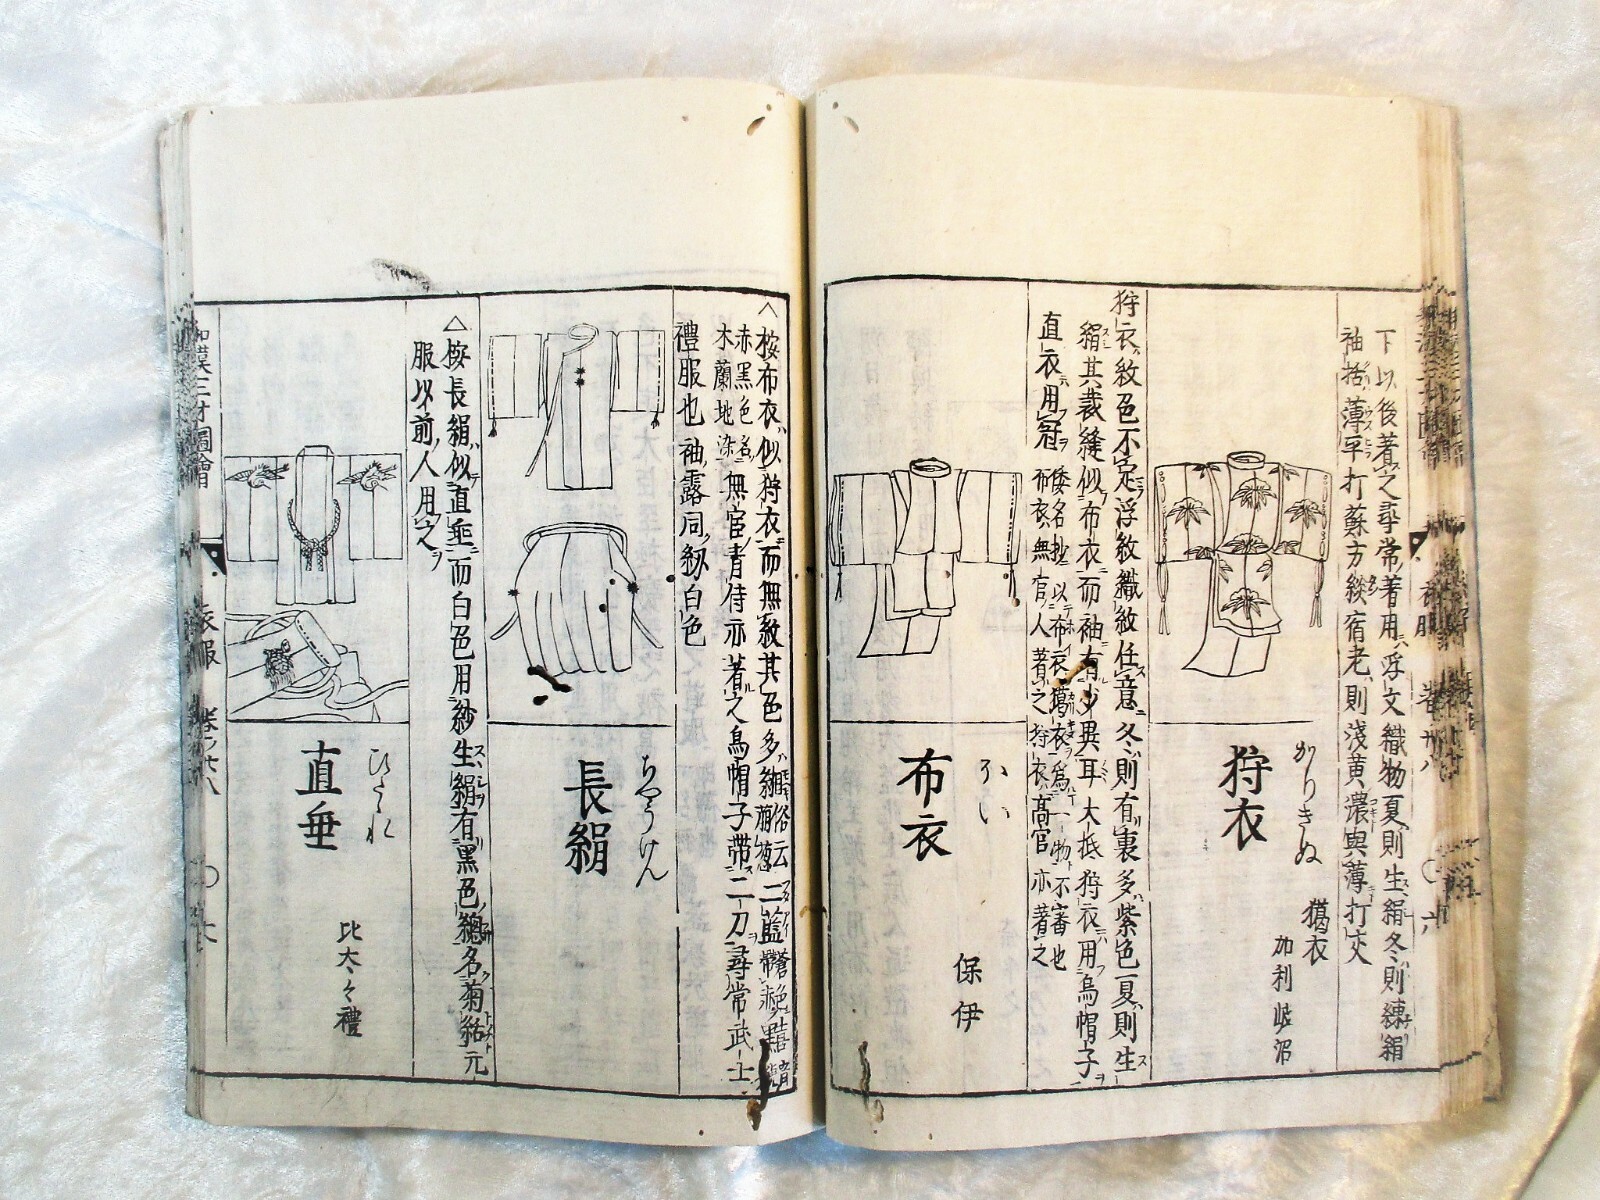 下以後著之尋常著用浮文織物夏則生絹冬則練絹
袖括薄平打蘇方綾宿老則淺黄濃與薄打交
狩衣
かりきぬ
猲衣
加利岐沼
狩衣紋色不定浮紋織紋任意冬則有裏多紫色夏則生
絹其裁縫似布衣而袖有少異耳大抵狩衣用烏帽子
直衣用冠
倭名抄以布衣猲衣爲一物不審也
布衣無官人著之狩衣高官亦著之
布衣
ほい
保伊
按布衣似狩衣而無紋其色多
俗云二藍
赤黒色名
木蘭地
無官青侍亦著之烏帽子帯二刀尋常武士
禮服也袖露同紐白色
長絹
ちやうけん
△按長絹似直垂而白色用紗生絹有黒色總名菊綴元
服以前人用之
直垂
ひたゝれ
比太々禮
和漢三才圖會
衣服